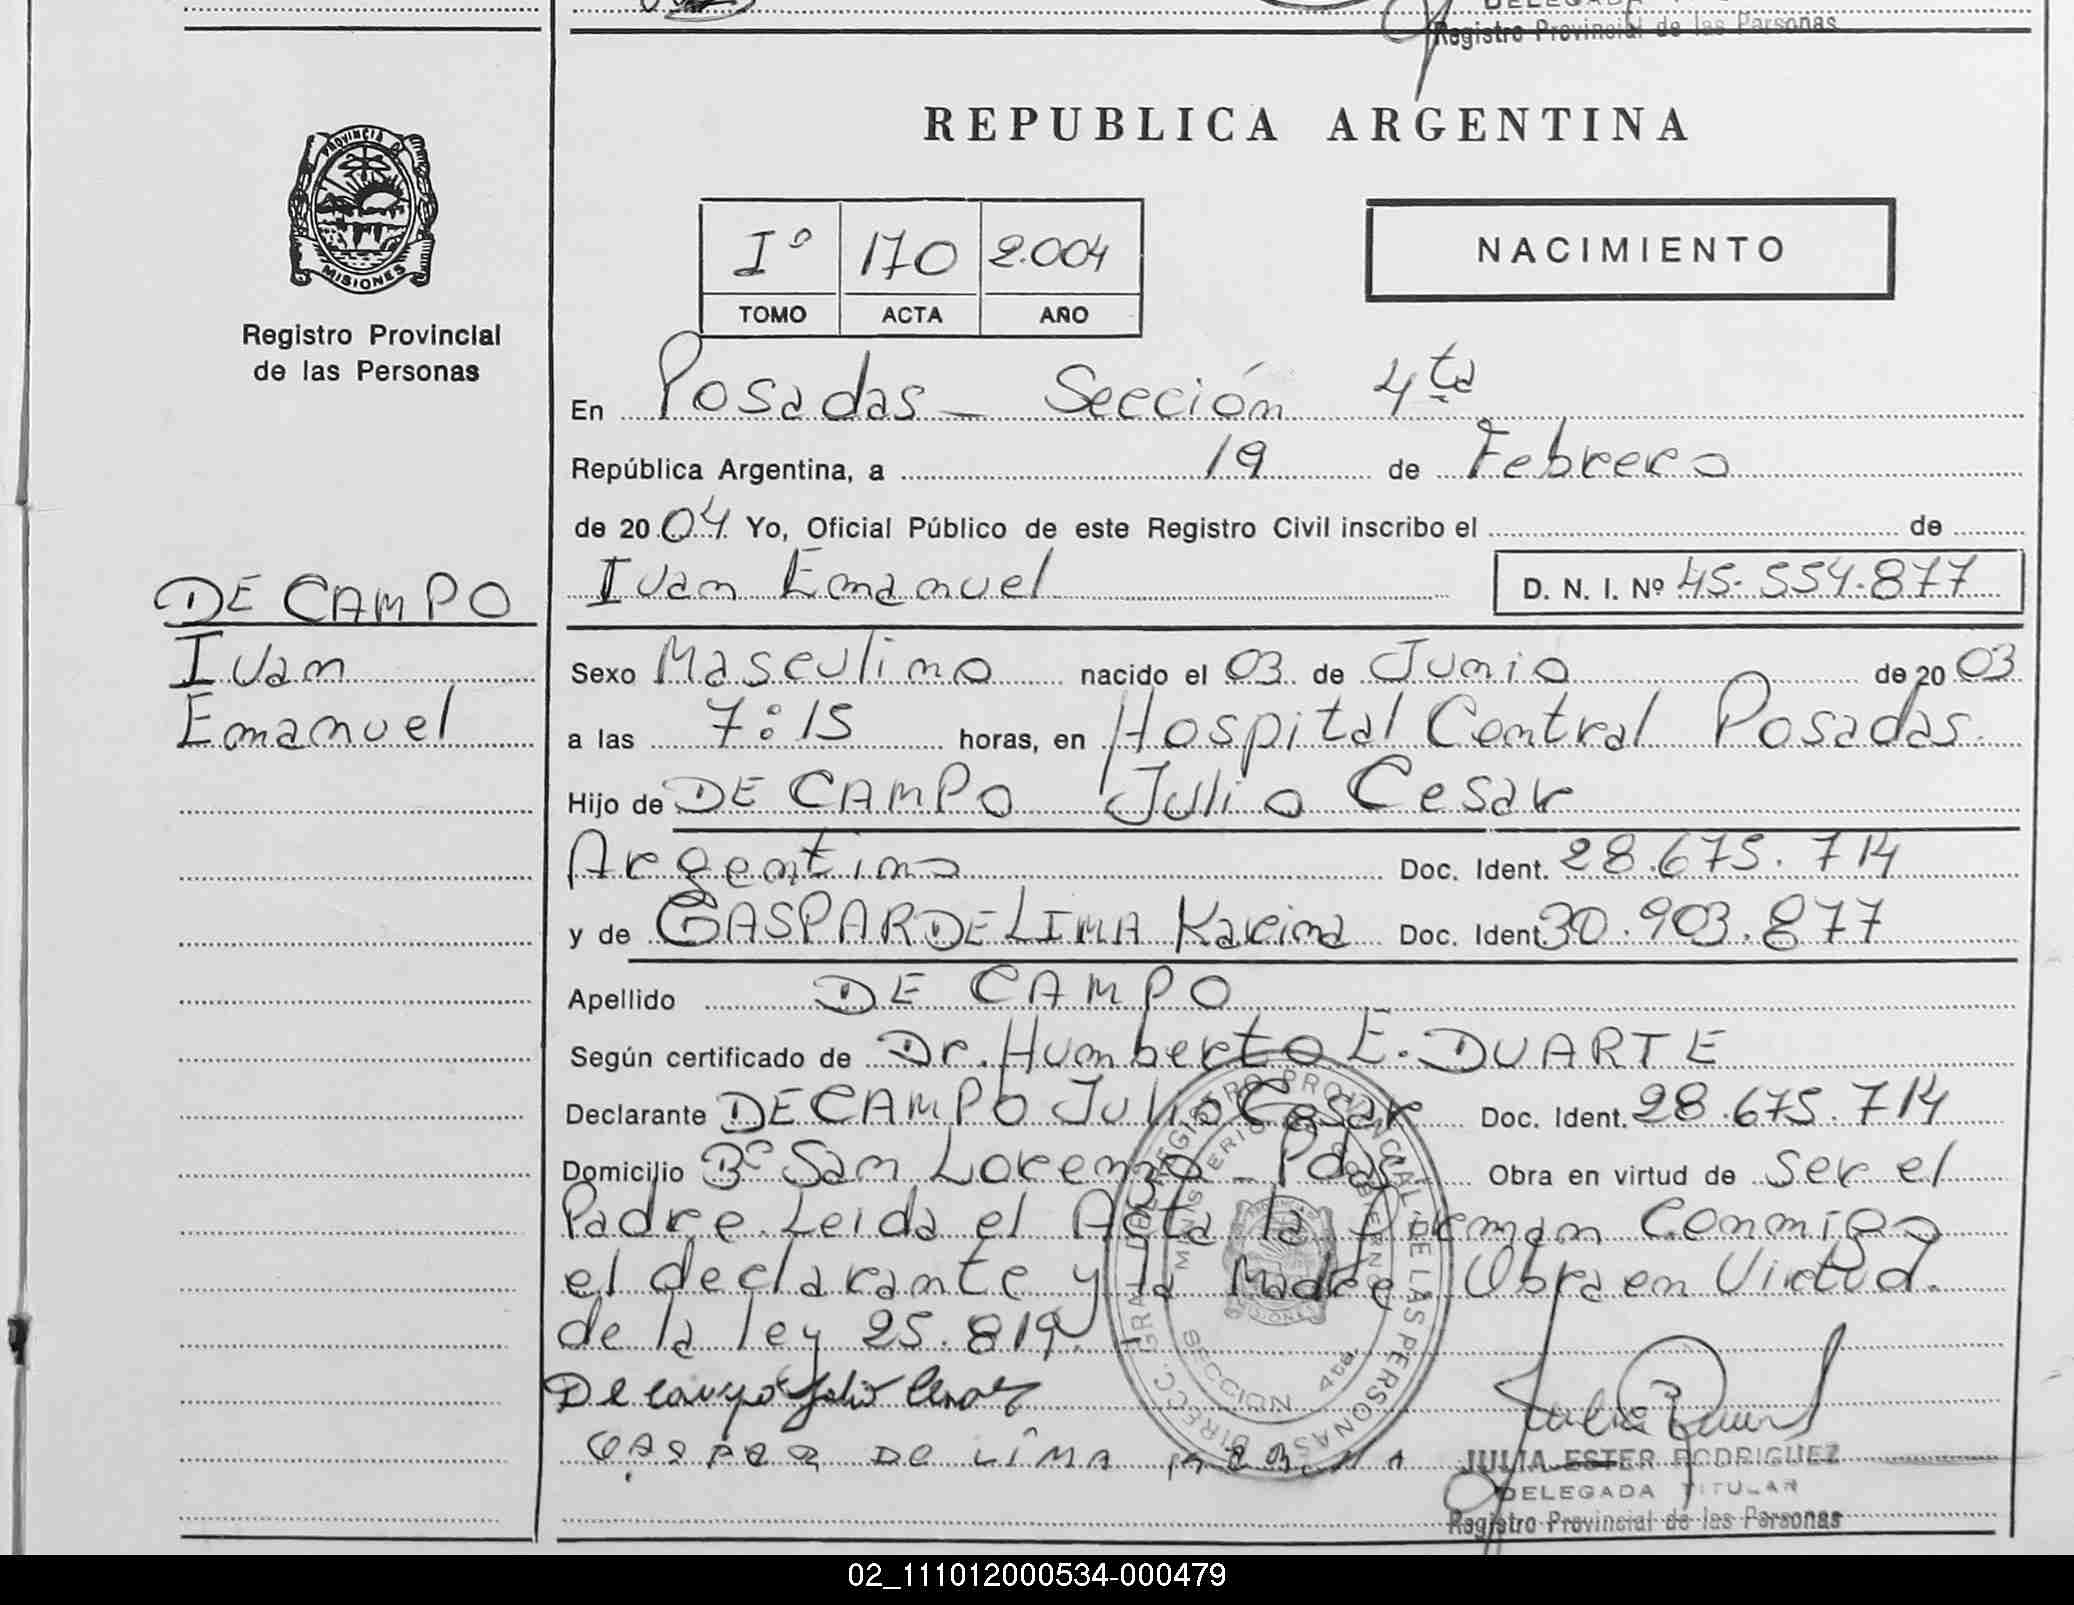 Registro Provincial de las Personas
REPUBLICA ARGENTINA
PROVINCIA DE
MISIONES
Registro Provincial
de las Personas
Iº 170 2.004
TOMO ACTA AÑO
NACIMIENTO
En Posadas - Sección 4ta
República Argentina, a 19 de Febrero
de 2004 Yo, Oficial Público de este Registro Civil inscribo el de
Ivan Emanuel D. N. I. Nº 45.554.877
DE CAMPO
Ivan
Emanuel
Sexo Masculino nacido el 03 de Junio de 2003
a las 7:15 horas, en Hospital Central Posadas.
Hijo de DE CAMPO Julio Cesar
Argentino Doc. Ident. 28.675.714
y de GASPARDELIMA Karina Doc. Ident 30.903.877
Apellido DE CAMPO
Según certificado de Dr. Humberto E. DUARTE
Declarante DECAMPO Julio Cesar Doc. Ident. 28.675.714
Domicilio Bº San Lorenzo - Pdas Obra en virtud de Ser el
Padre. Leida el Acta la Firman Conmigo
el declarante y la Madre. Obra en Virtud.
de la ley 25.819.
De campo Julio Cesar
GASPAR DE LIMA KARINA
DIRECC. GRAL. DEL REGISTRO PROVINCIAL DE LAS PERSONAS
MINISTERIO DE GOBIERNO
MISIONES
SECCION 4ta.
JULIA ESTER RODRIGUEZ
DELEGADA TITULAR
Registro Provincial de las Personas
02_111012000534-000479